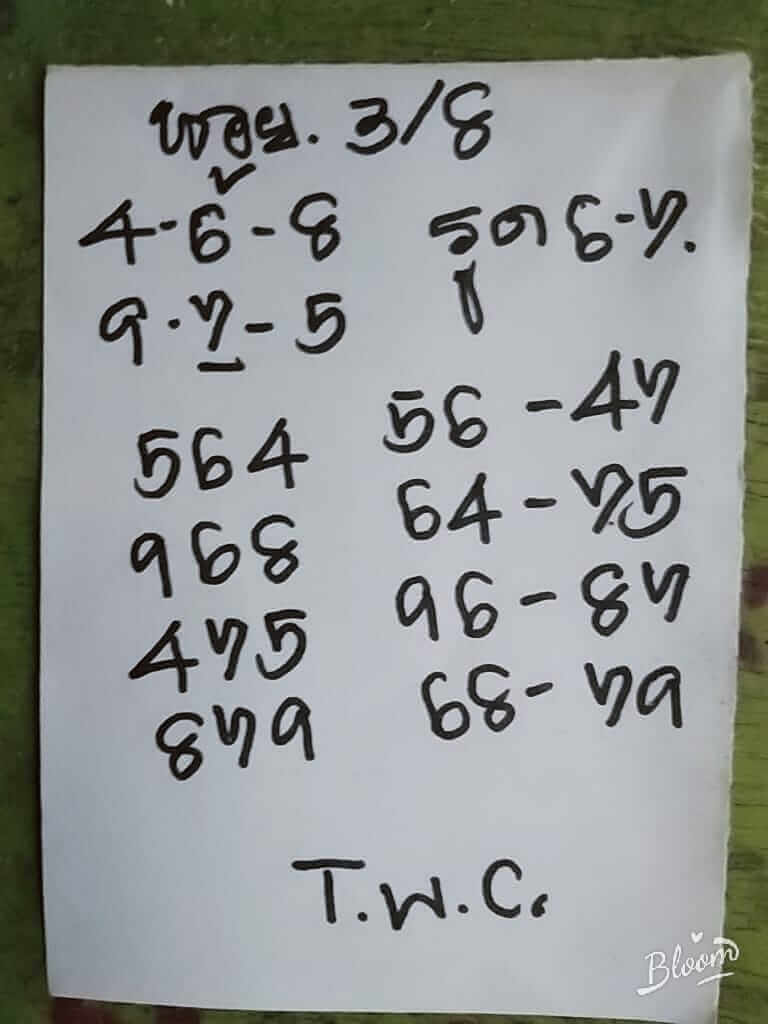 3/8
4-6-8 รูด 6-7.
9-7-5
564 56-47
968 64-75
475 96-87
879 68-79
T.W.C.